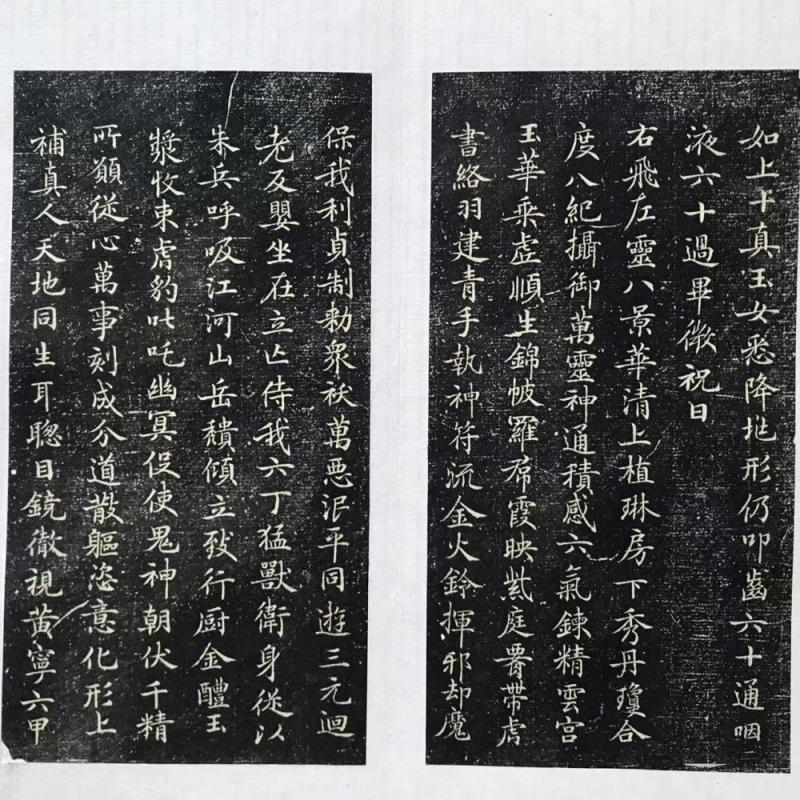 如上十真玉女悉降地形仍叩齒六十通咽
液六十過畢微祝曰
右飛左靈八景華清上植琳房下秀丹瓊合
度八紀攝御萬靈神通積感六氣鍊精雲宮
玉華乘虛順生錦帔羅帬霞映紫庭腎帶虎
書絡羽建青手執神符流金火鈴揮邪却魔
保我利貞制勑衆祅萬惡泯平同遊三元迴
老反嬰坐在立亾侍我六丁猛獸衛身從以
朱兵呼吸江河山岳穨傾立致行厨金醴玉
漿收束虎豹叱吒幽冥促使鬼神朝伏千精
所願從心萬事刻成分道散軀恣意化形上
補真人天地同生耳聰目鏡徹視黃寧六甲